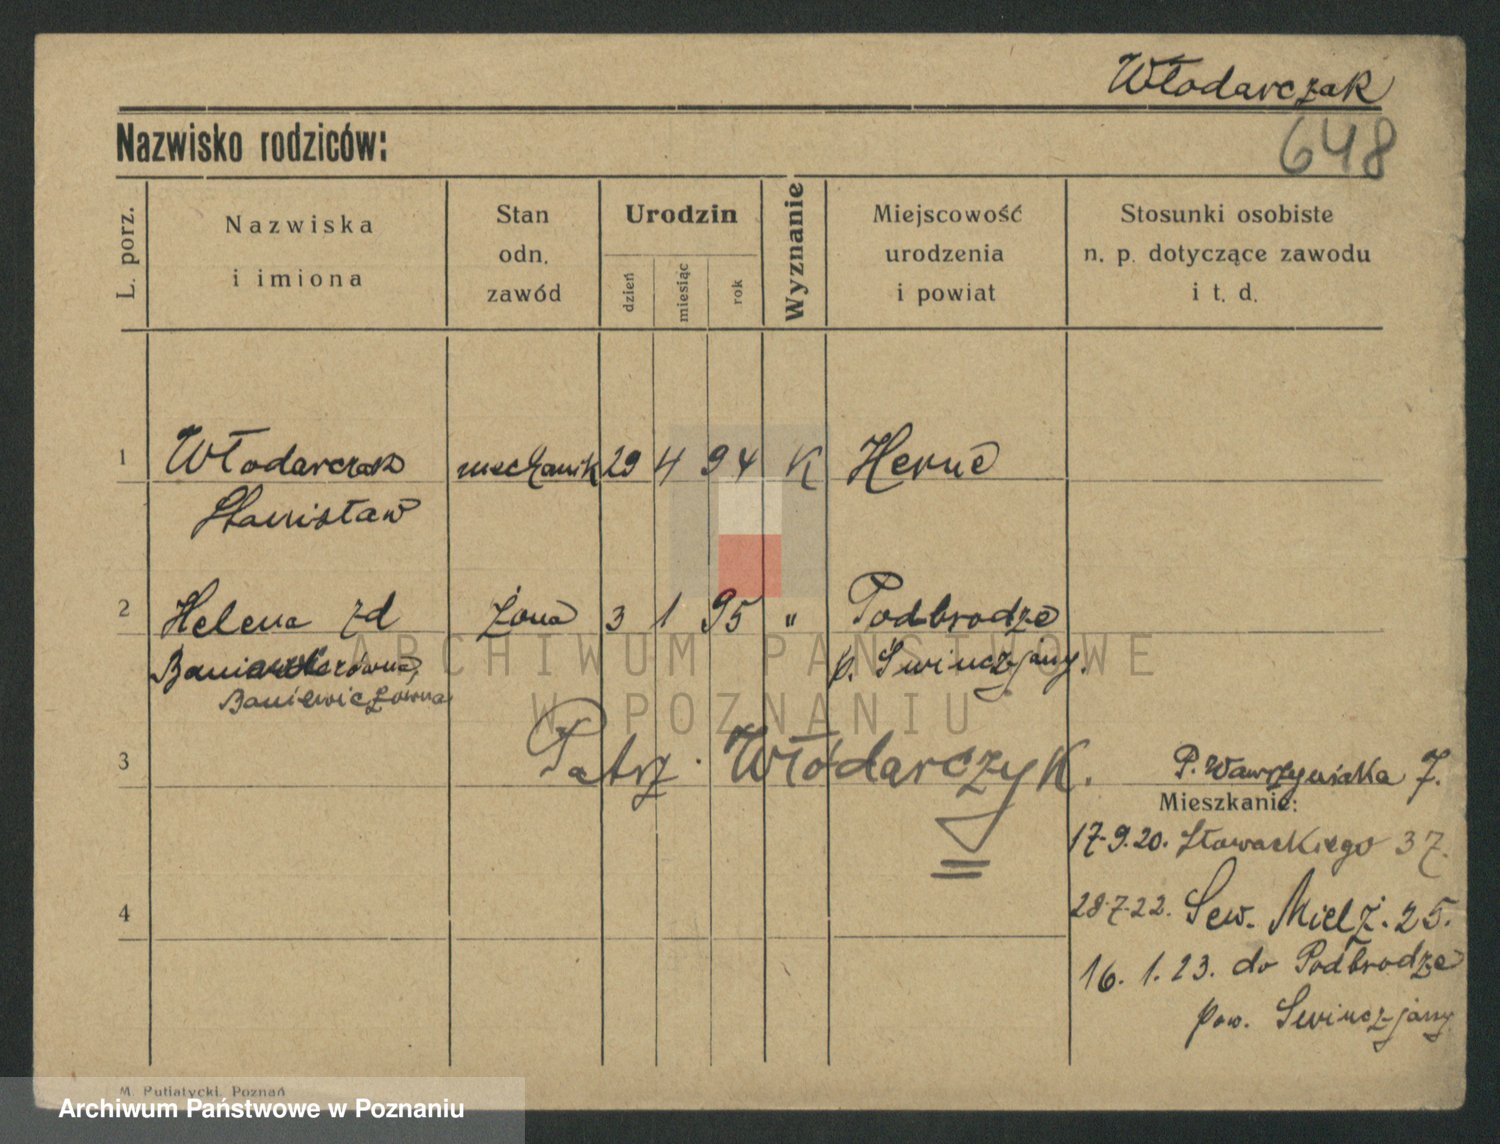 Włodarczak
Nazwisko rodziców:
648
L. porz.
Nazwiska
i imiona
Stan
odn.
zawód
Urodzin
dzień
miesiąc
rok
Wyznanie
Miejscowość
urodzenia
i powiat
Stosunki osobiste
n. p. dotyczące zawodu
i t. d.
1 Włodarczak mechanik 29 4 94 K Herne
Stanisław
2 Helena zd żona 3 1 95 " Podbrodze
p. Swinczjany.
Baniewiczówna
3 Patrz Włodarczyk.
P. Wawrzyniaka 7.
Mieszkanie:
17.9.20. Słowackiego 37.
28.7.22. Sew. Mielż. 25.
4
16.1.23. do Podbrodze
pow. Swinczjany
M. Putiatycki, Poznań
ARCHIWUM PAŃSTWOWE
W POZNANIU
Archiwum Państwowe w Poznaniu